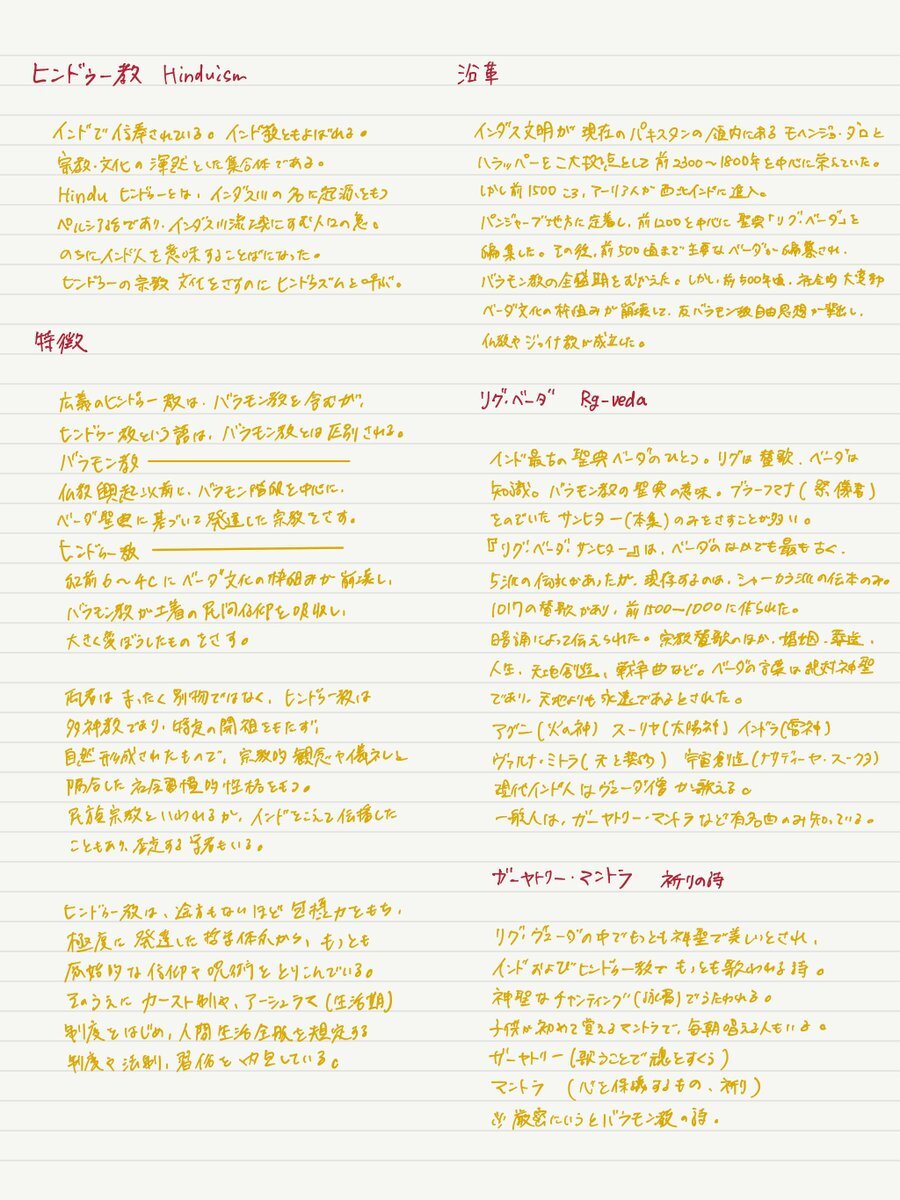 ヒンドゥー教 Hinduism
インドで信奉されている。インド教ともよばれる。
宗教・文化の渾然とした集合体である。
Hindu ヒンドゥーとは、インダス川の名に起源をもつ
ペルシア語であり、インダス川流域にすむ人口の意。
のちにインド人を意味することばになった。
ヒンドゥーの宗教 文化をさすのに ヒンドゥイズムと呼ぶ。
特徴
広義のヒンドゥー教は、バラモン教を含むが、
ヒンドゥー教という語は、バラモン教とは区別される。
バラモン教
仏教興起以前に、バラモン階級を中心に、
ベーダ聖典に基づいて発達した宗教をさす。
ヒンドゥー教
紀前6〜4Cにベーダ文化の枠組みが崩壊し、
バラモン教が土着の民間信仰を吸収し
大きく変ぼうしたものをさす。
両者はまったく別物ではなく、ヒンドゥー教は
多神教であり、特定の開祖をもたず、
自然形成されたもので、宗教的観念や儀礼と
融合した社会習慣的性格をもつ。
民族宗教といわれるが、インドをこえて伝播した
こともあり、否定する学者もいる。
ヒンドゥー教は、途方もないほど包容力をもち、
極度に発達した哲学体系から、もっとも
原始的な信仰や呪術をとりこんでいる。
そのうえにカースト制や、アーシュラマ(生活期)
制度をはじめ、人間生活全般を規定する
制度や法制、習俗を内包している。
沿革
インダス文明が現在のパキスタンの領内にあるモヘンジョ・ダロと
ハラッパーを二大拠点として前2300〜1800年を中心に栄えていた。
しかし前1500ころ、アーリア人が西北インドに進入。
パンジャーブ地方に定着し、前1200を中心に聖典「リグ・ベーダ」を
編集した。その後、前500頃まで主要なベーダが編纂され、
バラモン教の全盛期をむかえた。しかし、前500年頃、社会的大変動
ベーダ文化の枠組みが崩壊して、反バラモン教自由思想が輩出し、
仏教やジャイナ教が成立した。
リグ・ベーダ Rg-veda
インド最古の聖典ベーダのひとつ。リグは賛歌、ベーダは
知識。バラモン教の聖典の意味。ブラーフマナ(祭儀書)
をのぞいた サンヒター(本集)のみをさすことが多い。
『リグ・ベーダ・サンヒター』は、ベーダのなかでも最も古く、
5派の伝本があったが、現存するのは、シャーカラ派の伝本のみ。
1017の賛歌があり、前1500〜1000に作られた。
暗誦によって伝えられた。宗教賛歌のほか、婚姻、葬送、
人生、天地創造、戦争曲など。ベーダの言葉は絶対神聖
であり、天地よりも永遠であるとされた。
アグニ(火の神) スーリヤ(太陽神) インドラ(雷神)
ヴァルナ・ミトラ(天と契約) 宇宙創造(ナサディーヤ・スークタ)
現代インド人はヴェーダ僧が歌える。
一般人は、ガーヤトリー・マントラなど有名曲のみ知っている。
ガーヤトリー・マントラ 祈りの詩
リグ・ヴェーダの中でもっとも神聖で美しいとされ、
インドおよびヒンドゥー教でもっとも歌われる詩。
神聖なチャンティング(詠唱)でうたわれる。
子供が初めて覚えるマントラで、毎朝唱える人もいる。
ガーヤトリー(歌うことで魂をすくう)
マントラ (心を保護するもの、祈り)
※厳密にいうとバラモン教の詩。